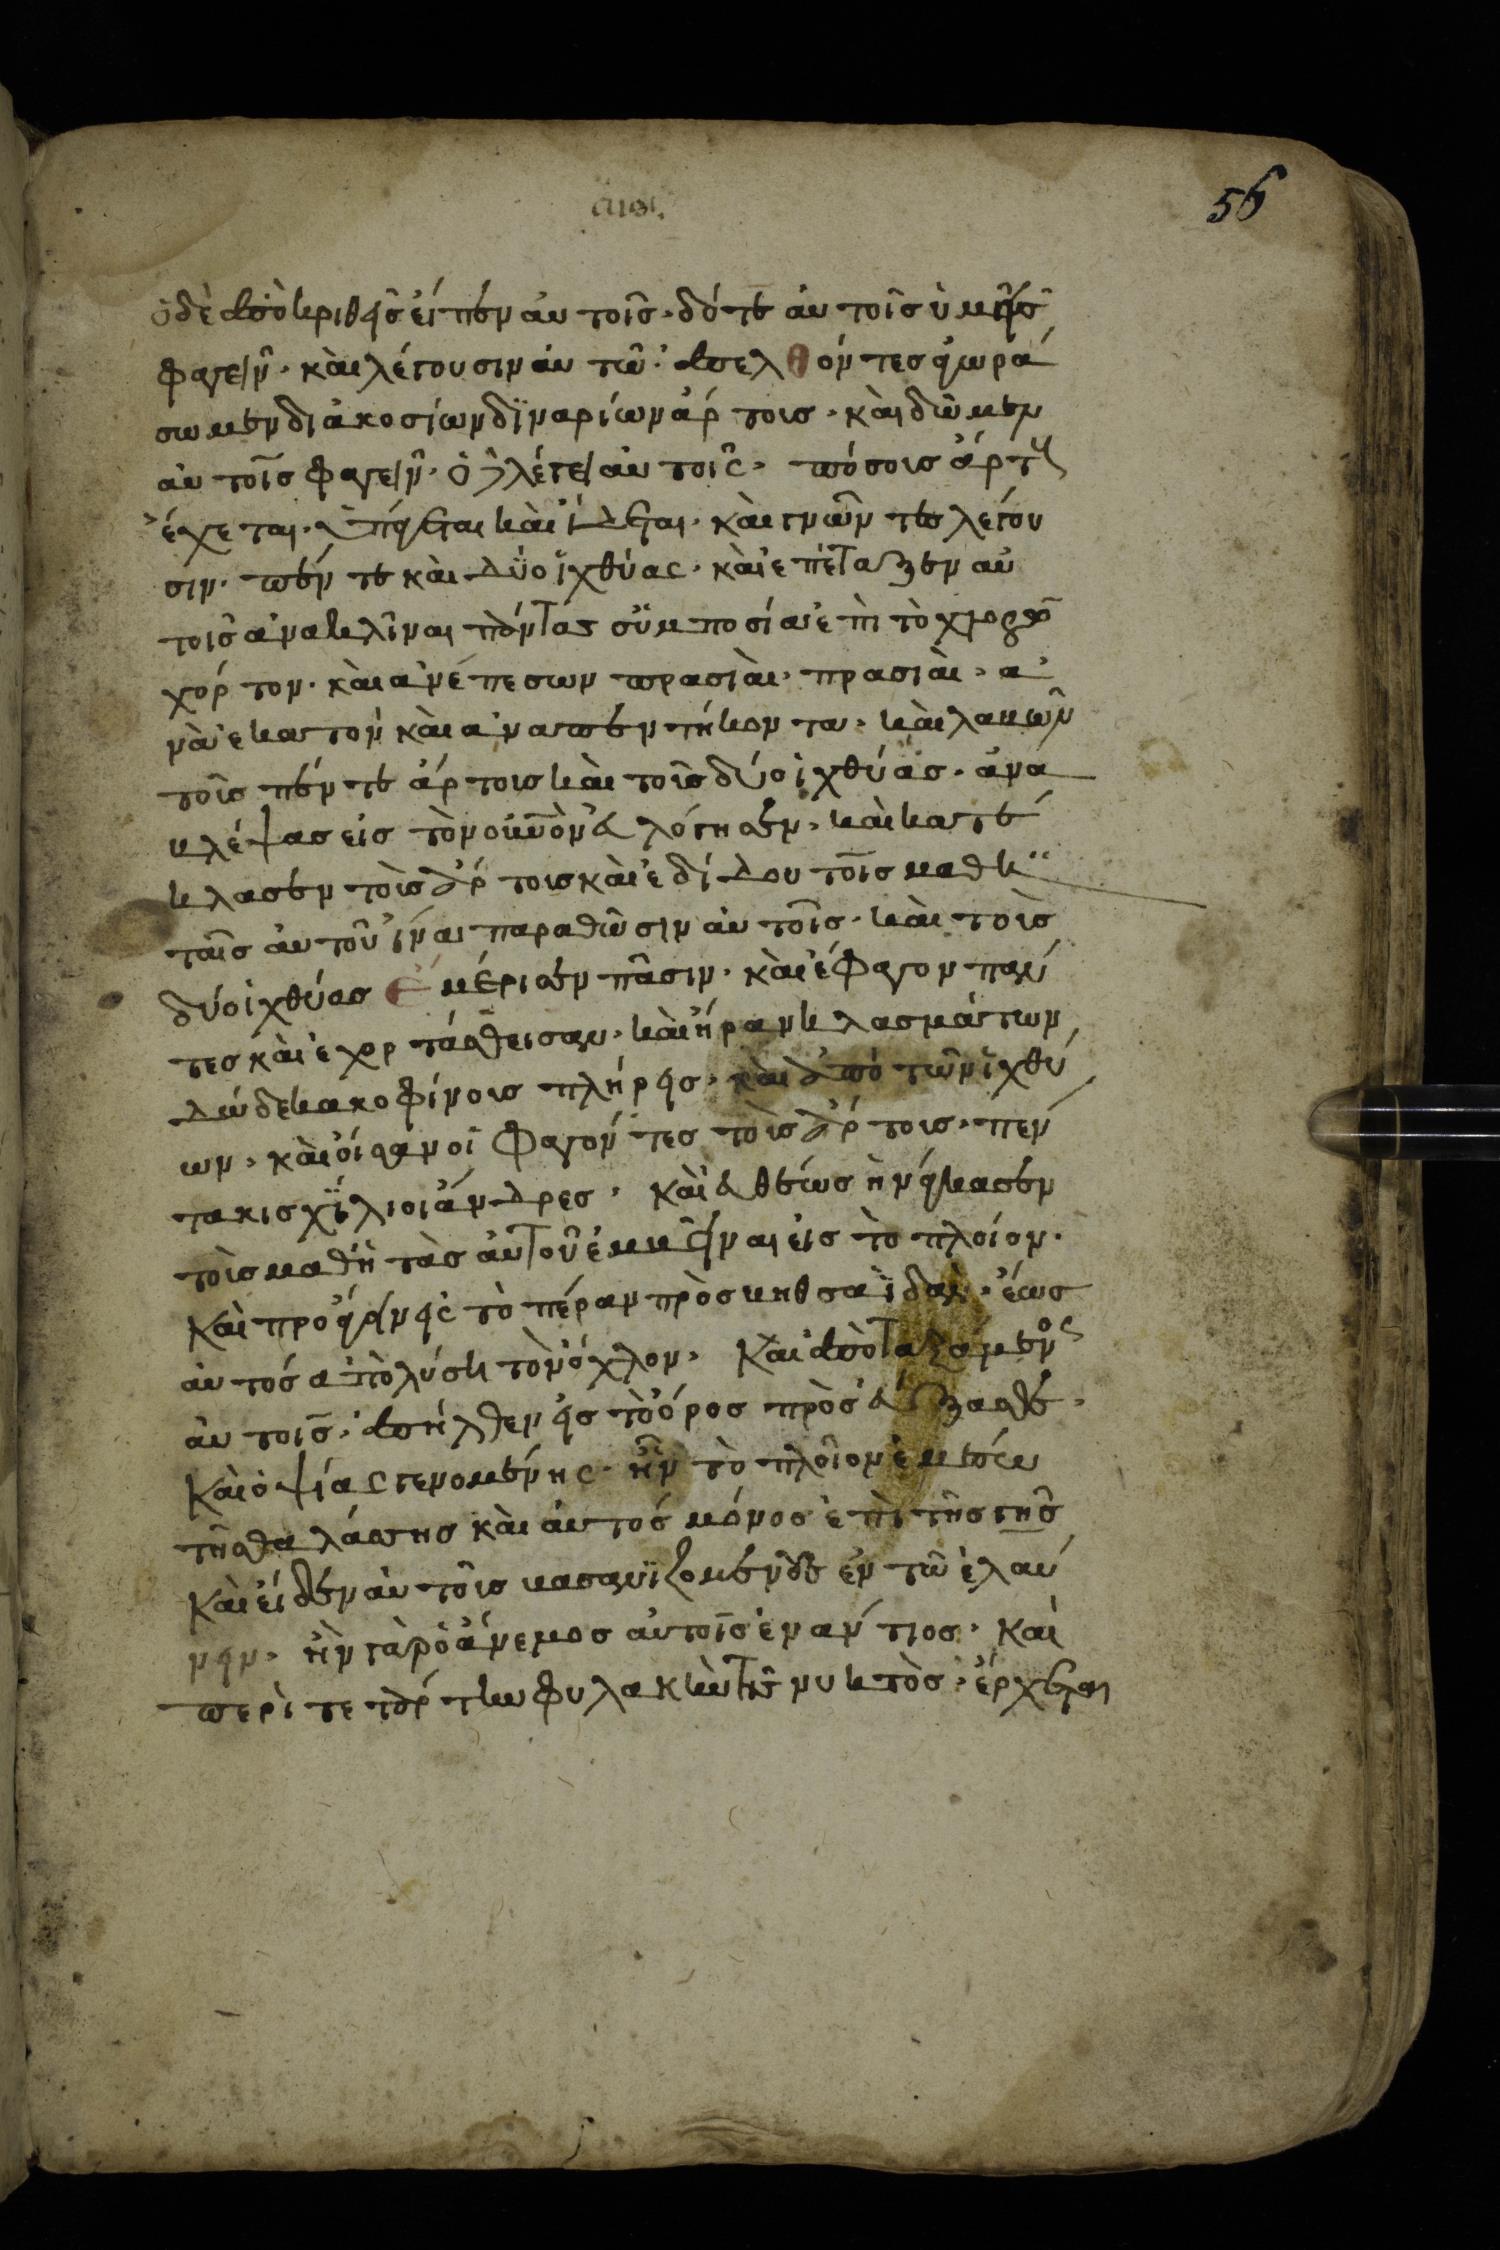 56
ὁ δὲ ἀποκριθεὶς εἶπεν αὐτοῖς· δότε αὐτοῖς ὑμεῖς
φαγεῖν· καὶ λέγουσιν αὐτῷ· ἀπελθόντες ἀγωρά
σωμεν διακοσίων δϊναρίων ἄρτοις· καὶ δῶμεν
αὐτοῖς φαγεῖν· ὁ δὲ λέγει αὐτοῖς· πόσοις ἄρτους
ἔχεται· ὑπάγεται καὶ ἴδεται· καὶ γνῶντες λέγου
σιν· πέντε καὶ δύο ἰχθύας· καὶ ἐπέταξεν αὐ
τοῖς ἀνακλῖναι πάντας συμποσία ἐπὶ τὸ χλορῶ
χόρτον· καὶ ἀνέπεσων πρασιὰι· πρασιὰι· ἀ
νὰ ἑκατον καὶ ἀνα πεντήκοντα· καὶ λαβὼν
τοῖς πέντε ἄρτοις καὶ τοῖς δύο ἰχθύας· ἀνα
βλέψας εἰς τὸν οὐνὸν εὐλόγησεν· καὶ κατέ
κλασεν τοῖς ἄρτοις καὶ ἐδίδου τοῖς μαθη
ταῖς αὐτοῦ ἵναι παραθῶσιν αὐτοῖς· καὶ τοὶς
δύο ἰχθύας ἐμέρισεν πᾶσιν· καὶ ἔφαγον πάν
τες καὶ ἐχορτάσθεισαν· καὶ ἤραν κλασμάτων
δώδεκα κοφίνοις πλήρεις· καὶ ἀπὸ τῶν ἰχθύ
ων· καὶ οἱ σανοϊ φαγόντες τοὶς ἄρτοις· πεν
τακισχΐλιοι ἄνδρες· Καὶ εὐθέως ἠνάγκασεν
τοὶς μαθητὰς αὐτοῦ ἐμβεῖναι εἰς τὸ πλοίον·
Καὶ προάγειν εἰς τὸ πέραν πρὸς βηθσαϊδαν· ἕως
αὐτός ἀπολύσει τὸν ὄχλον· Καὶ ἀποταξάμενος
αὐτοῖς· ἀπήλθεν εἰς τὸ ὄρος πρὸς εὔξασθε·
Καὶ ὀψίας γενομένης· ἦν τὸ πλοῖον ἐμ μέσω
τῆς θαλάσσης καὶ αὐτός μόνος ἐπὶ τῆς γῆς
Καὶ εἶδεν αὐτοῖς βασανιζομένους ἐν τῶ ἐλαύ
νειν· ἦν γὰρ ὁ ἄνεμος αὐτοῖς ἐναντίος· Καὶ
περὶ τετάρτην φυλακὴν τῆς νυκτὸς· ἔρχεται